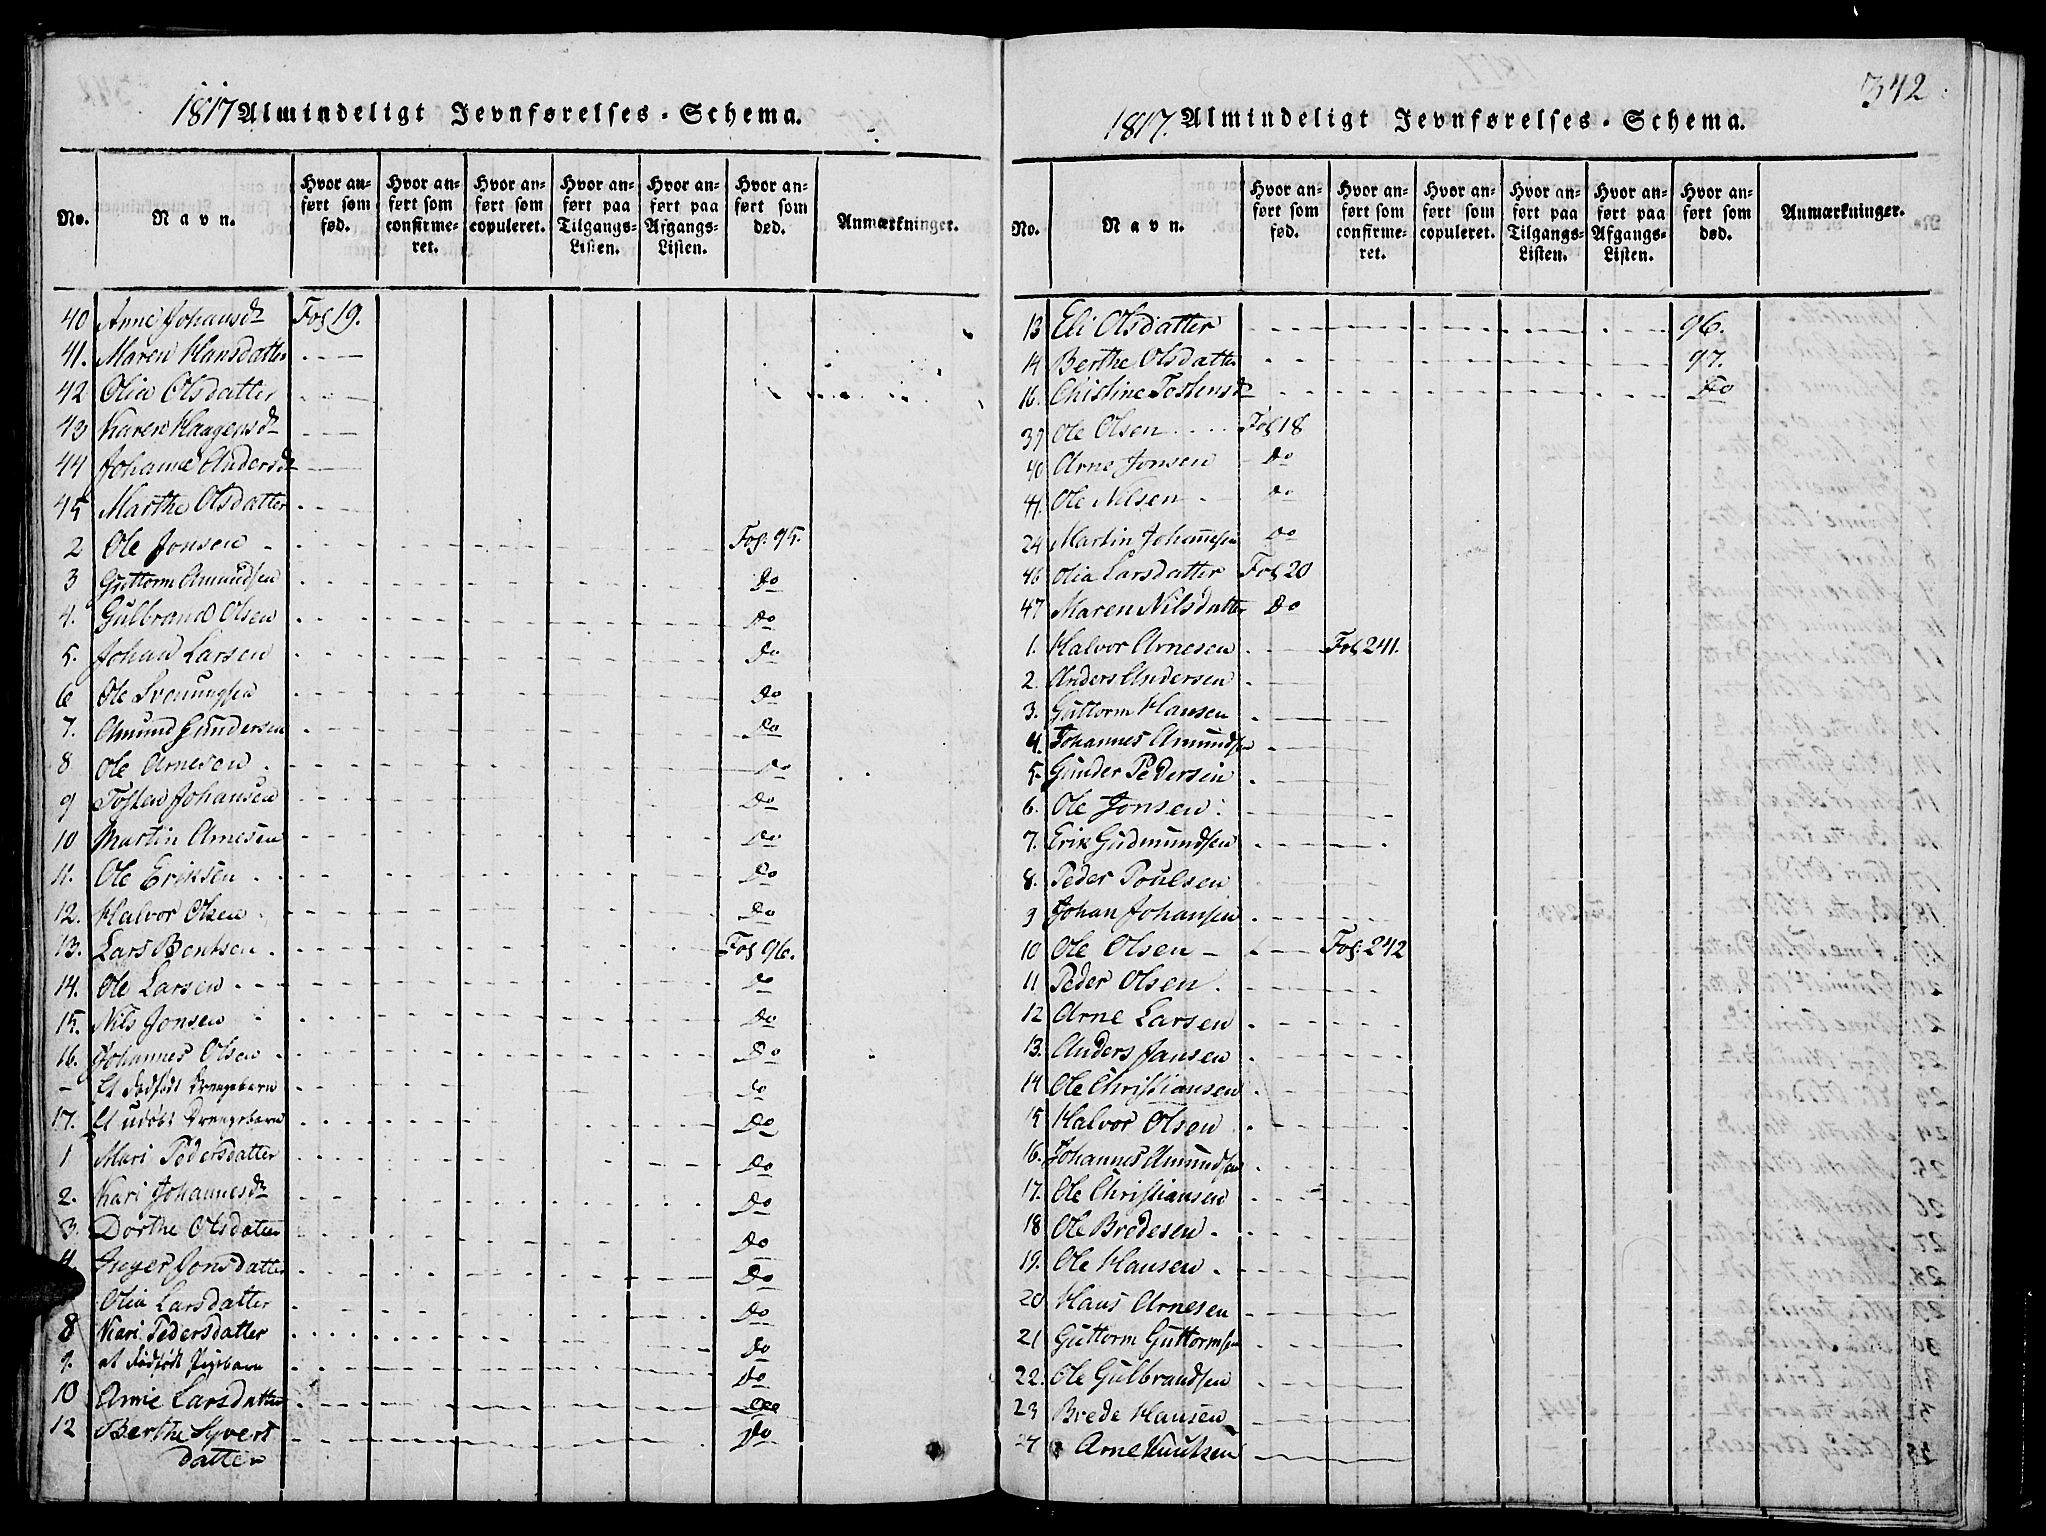 1817 Almindeligt Jevnførelses-Schema.
No. Navn. Hvor anført som fød. Hvor anført som confirmeret. Hvor anført som copuleret. Hvor anført paa Tilgangs-Listen. Hvor anført paa Afgangs-Listen. Hvor anført som død. Anmærkninger.
40 Anne Johansdr Fol 19.
41. Maren Hansdatter
42 Olia Olsdatter
43 Karen Haagensdr
44 Johanne Andersdr
45 Marthe Olsdatter
2 Ole Jonsen Fol: 95.
3 Guttorm Amundsen Do
4. Gulbrand Olsen Do
5. Johan Larsen Do
6 Ole Svenungsen Do
7. Amund Gundersen Do
8 Ole Arnesen Do
9 Tosten Johansen Do
10 Martin Arnesen Do
11. Ole Eriksen Do
12. Halvor Olsen Do
13. Lars Bentsen Fol 96.
14. Ole Larsen Do
15. Nils Jonsen Do
16. Johannes Olsen Do
- Et dødfødt Drengebarn Do
17. Et udøbt Drengebarn Do
1 Mari Pedersdatter Do
2. Kari Johannesdr Do
3. Dorthe Olsdatter Do
4 Inger Jonsdatter Do
Olia Larsdatter Do
8 Kari Pedersdatter Do
9. et dødfødt Pigebarn Do
10 Anne Larsdatter Do
12 Berthe Syvert Do
datter
342
1817. Almindeligt Jevnførelses-Schema.
No. Navn. Hvor anført som fød. Hvor anført som confirmeret. Hvor anført som copuleret. Hvor anført paa Tilgangs-Listen. Hvor anført paa Afgangs-Listen. Hvor anført som død. Anmærkninger.
13 Eli Olsdatter 96.
14 Berthe Olsdatter 97.
16. Christine Tostensdr Do
39 Ole Olsen Fol 18
40 Arne Jonsen Do
41. Ole Nilsen Do
24 Martin Johannesen Do
46 Olia Larsdatter Fol 20
47 Maren Nilsdatter Do
1. Halvor Arnesen Fol 241.
2. Anders Andersen
3. Guttorm Hansen
4. Johannes Amundsen
5. Gunder Pedersen
6. Ole Jonsen
7. Erik Gudmundsen
8. Peder Poulsen
9 Johan Johansen
10 Ole Olsen Fol: 242
11 Peder Olsen
12 Arne Larsen
13. Anders Jansen
14 Ole Christiansen
15 Halvor Olsen
16. Johannes Amundsen
17. Ole Christiansen
18 Ole Bredesen
19. Ole Hansen
20 Hans Arnesen
21 Guttorm Guttormsen
22. Ole Gulbrandsen
23 Brede Hansen
24 Arne Knutsen